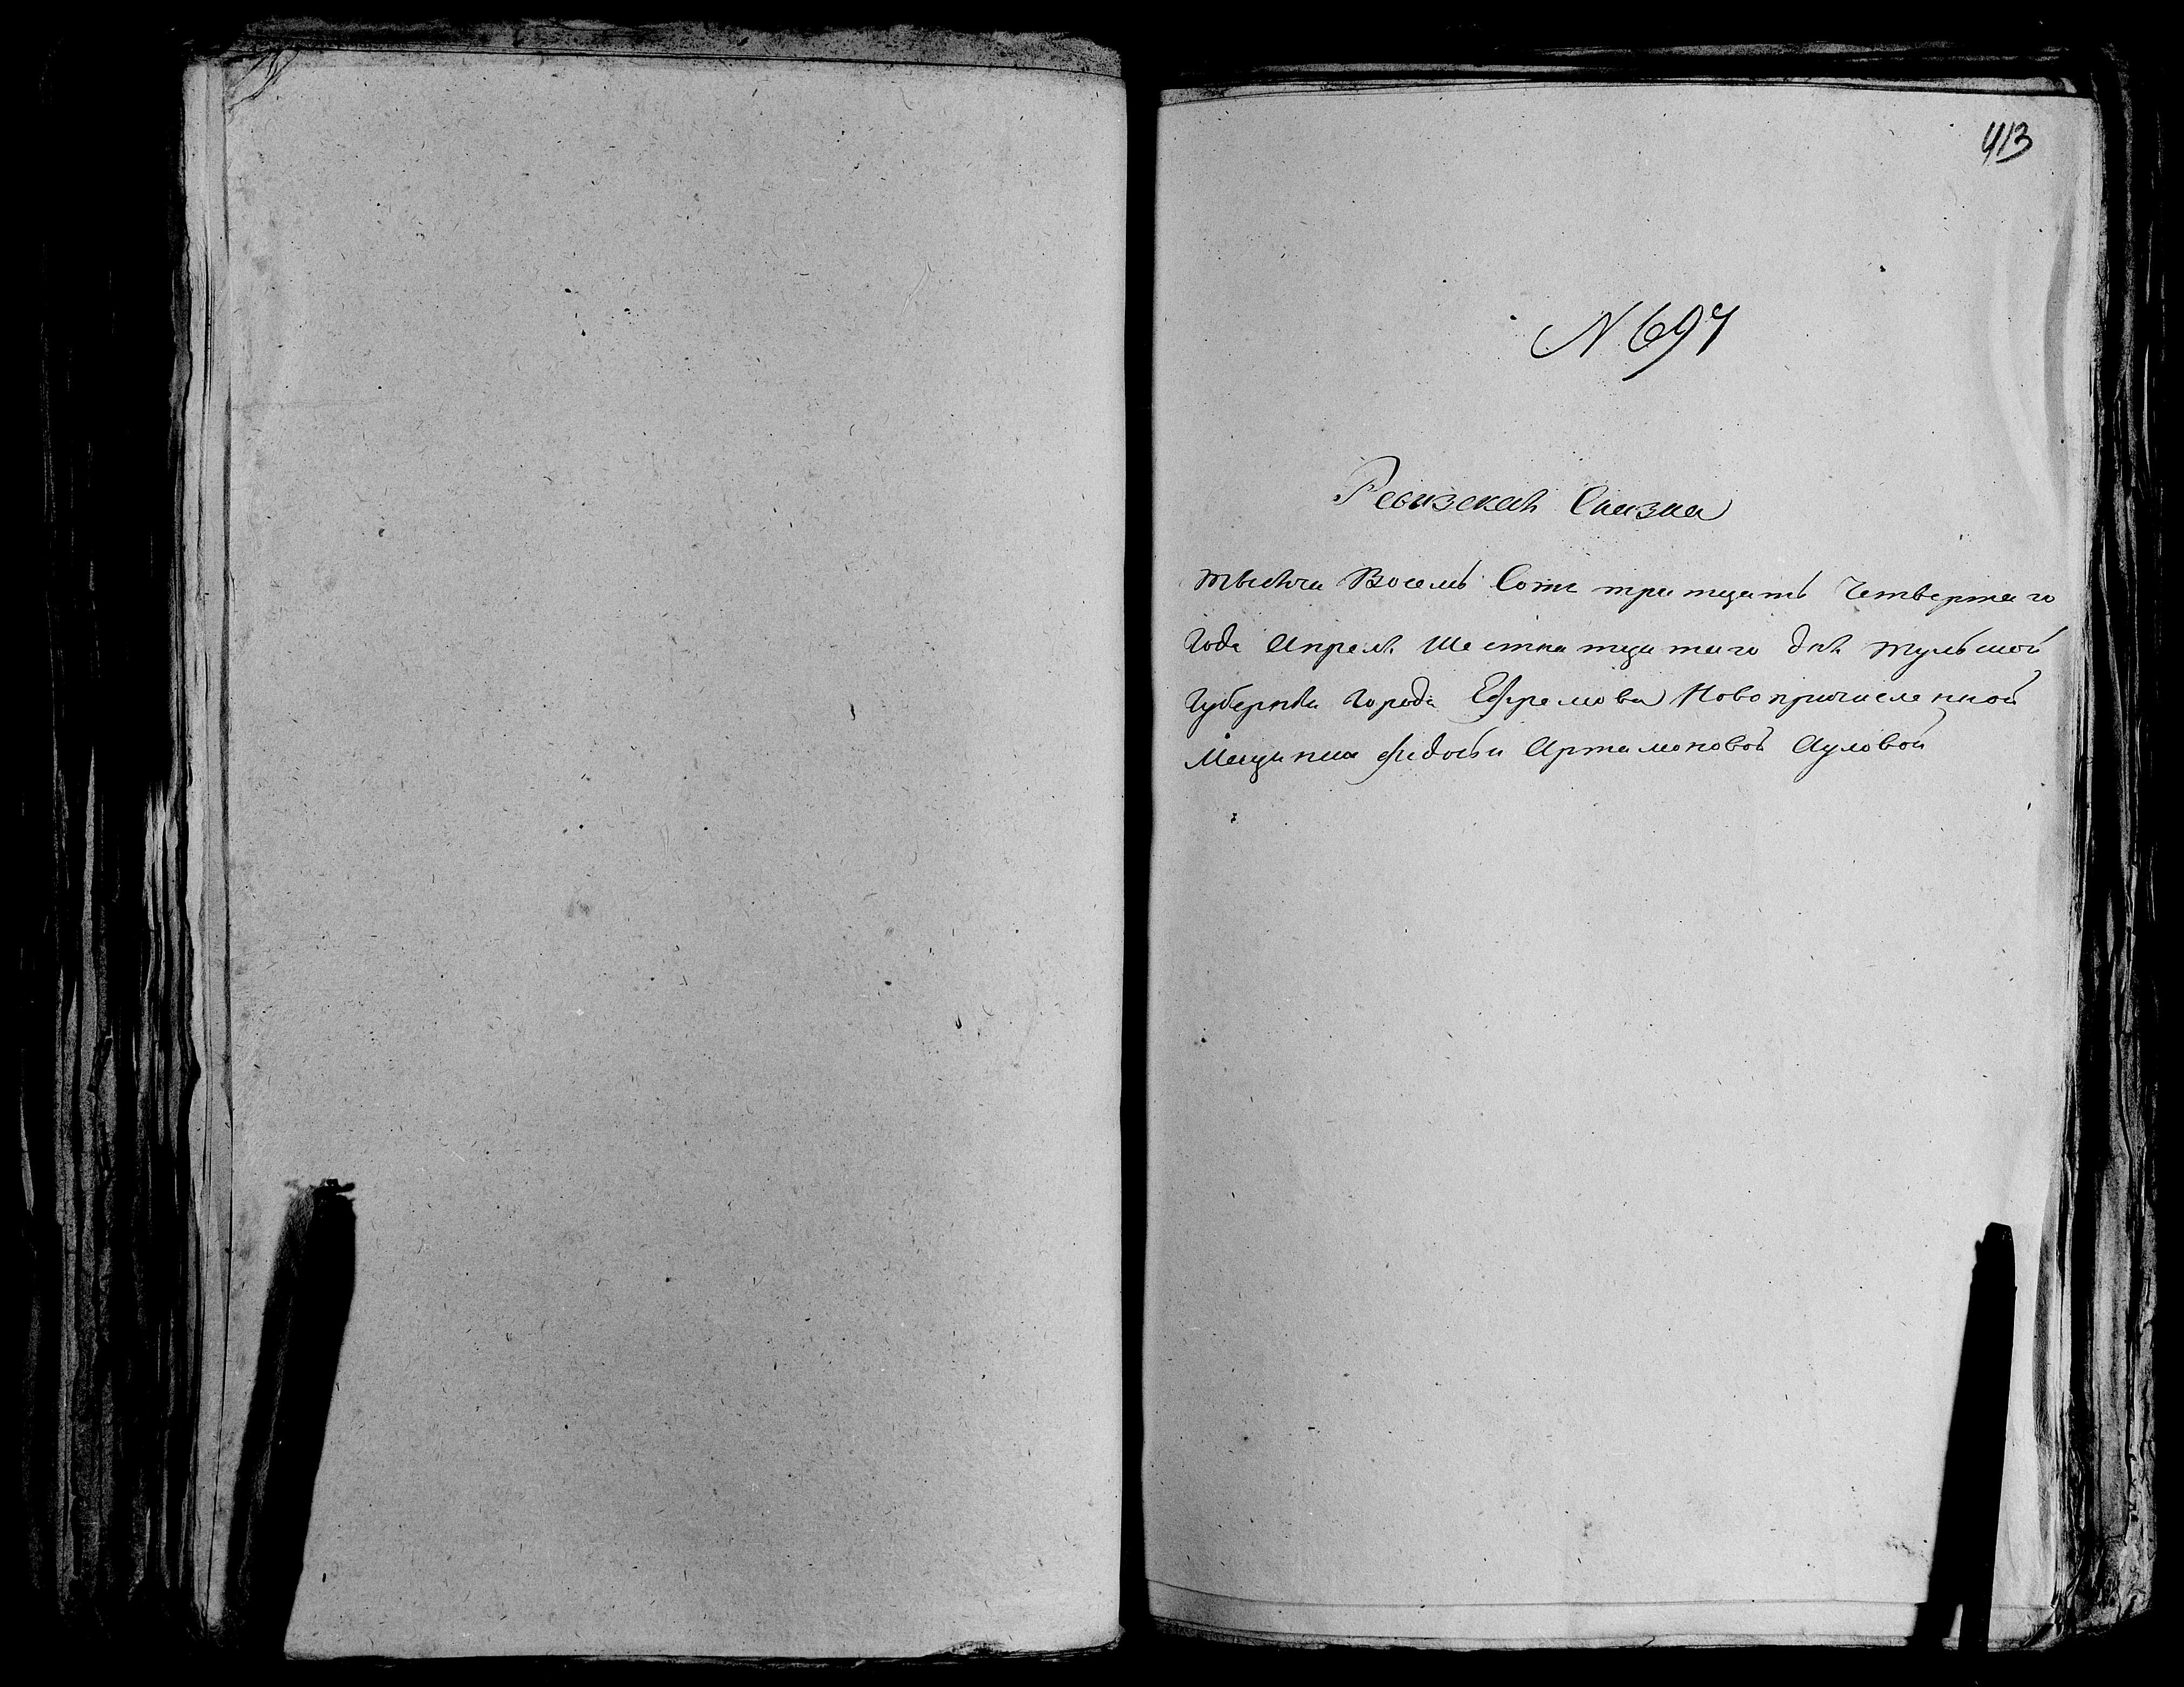 413
N 697
Ревизская Сказка
тысяча Восемь Сотъ тритцать Четвертаго
Года Апреля Шестнатцатаго дня Тульской
Губернiи Города Ефремова Новопричисленной
Мещинки Федосьи Артамоновой Ауловой